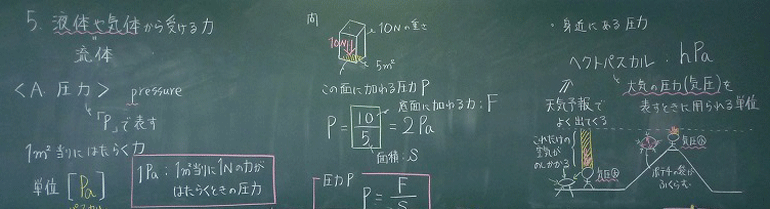 5. 液体や気体から受ける力
流体
<A. 圧力> pressure
「P」で表す
1m²当りにはたらく力
単位 [Pa]
パスカル
1Pa: 1m²当りに1Nの力が
はたらくときの圧力
問
10Nの重さ
10N
5m²
この面に加わる圧力P
底面に加わる力:F
P = 10/5 = 2Pa
面積:S
圧力P
P = F/S
・身近にある圧力
ヘクトパスカル・hPa
大気の圧力(気圧)を
表すときに用いられる単位
天気予報で
よく出てくる
これだけの
空気が
のしかかる
気圧大
気圧小
ポテチの袋が
ふくらむ